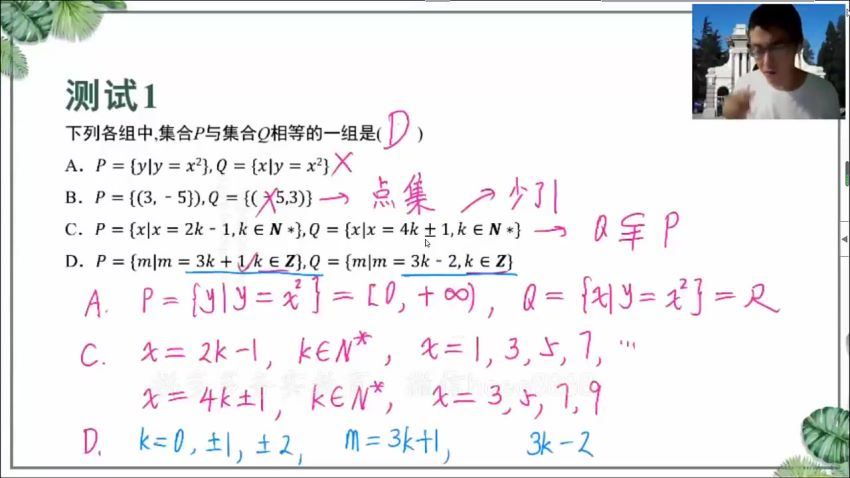 测试1
下列各组中,集合P与集合Q相等的一组是( D )
A. P = {y|y = x²}, Q = {x|y = x²} ×
B. P = {(3, -5)}, Q = {(-5,3)} → 点集 ↗ 少了1
C. P = {x|x = 2k - 1, k ∈ N *}, Q = {x|x = 4k ± 1, k ∈ N *} → Q ⫋ P
D. P = {m|m = 3k + 1, k ∈ Z}, Q = {m|m = 3k - 2, k ∈ Z}
A. P = {y|y = x²} = [0, +∞), Q = {x|y = x²} = R
C. x = 2k-1, k∈N*, x = 1, 3, 5, 7, ...
x = 4k±1, k∈N*, x = 3, 5, 7, 9
D. k=0, ±1, ±2, m=3k+1, 3k-2